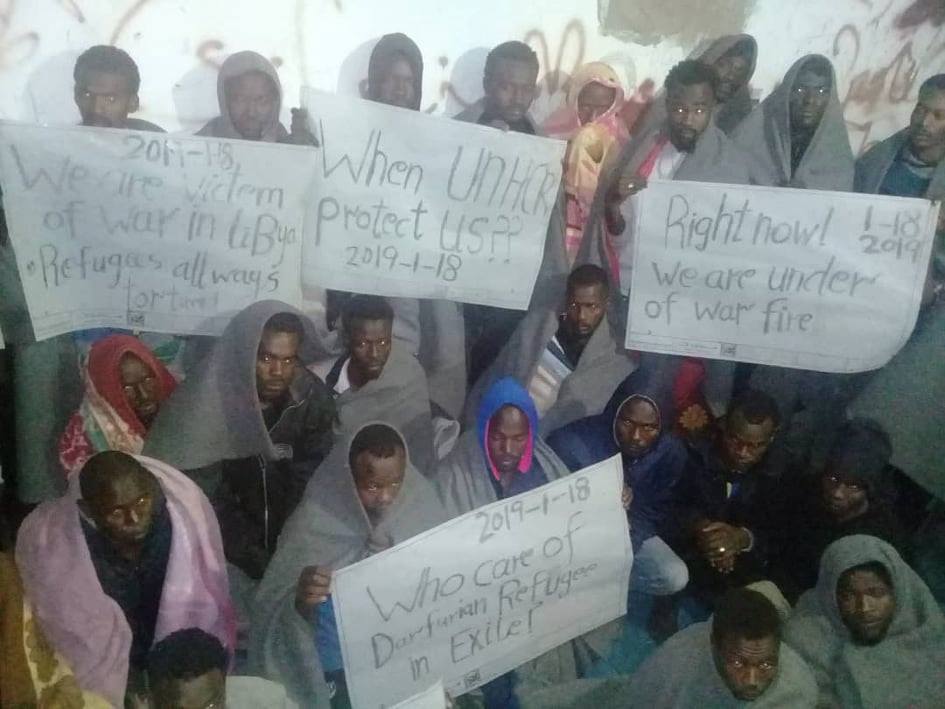 2019-1-18,
We are victem
of war in LiBya
Refugees allways
When UNHCR
Protect US??
2019-1-18
Right now! 1-18
2019
we are under
of war fire
2019-1-18
Who care of
Darfurian Refugee
in Exile!